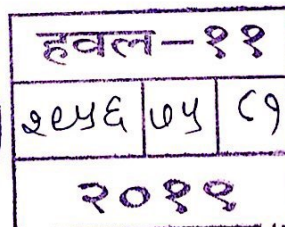 हवल-११
२९५६ ७५ ८१
२०१९